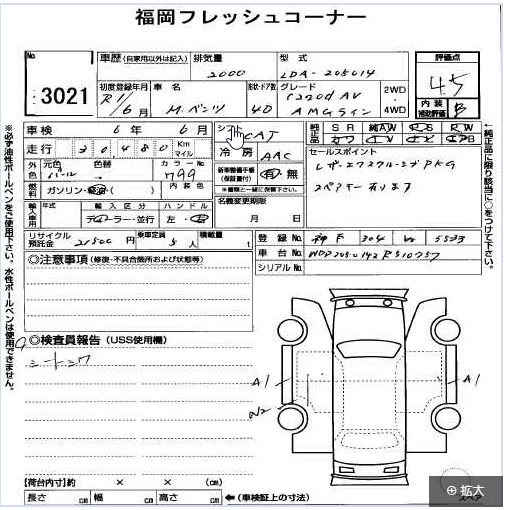 福岡フレッシュコーナー
No. 3021
車歴 (自家用以外は記入)
排気量 2000
型式 LDA-205014
評価点 4.5
内装補助評価 B
初度登録年月 R1/6月
車名 M.ベンツ
形状・ドア数 4D
グレード C220d AV AMGライン
2WD
4WD
車検 6年 6月
シフト CAT
純正品 SR 純AW PS PW
走行 20,480 Km マイル
冷房 AAC
セールスポイント
レザーエクスクルーシブPKG
スペアキー有ります
外色 元色 パール
色替 →
カラーNo. 799
燃料 ガソリン・軽油・( )
内装色
新車整備手帳(保証書付) 有・無
※書類と一緒に保管下さい。
輸入車用 年式
輸入区分 ディーラー・並行
ハンドル 左・右
名義変更期限 月 日
リサイクル預託金 円
乗車定員 5人
積載量 t
登録No. 神戸 304 5533
車台No. WDD2050142R510757
シリアルNo.
◎注意事項 (修復・不具合箇所および状態等)
◎検査員報告 (USS使用欄)
シートシワ
A1
W2
A1
【荷台内寸】約 × × (㎝)
長さ ㎝ 幅 ㎝ 高さ ㎝
←(車検証上の寸法)
スペア
拡大
※必ず油性ボールペンをご使用下さい。水性ボールペンは使用できません。
←純正品に限り該当に○をつけて下さい。